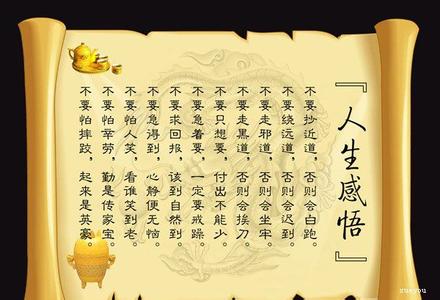 『人生感悟』
不要抄近道，否则会白跑。
不要绕远道，否则会迟到。
不要走邪道，否则会坐牢。
不要走黑道，否则会挨刀。
不要只想要，付出不能少。
不要急着要，一定要戒躁。
不要求回报，该到自然到。
不要急得到，心静便无恼。
不要怕人笑，看谁笑到老。
不要怕辛劳，勤是传家宝。
不要怕摔跤，起来是英豪。
xueyou